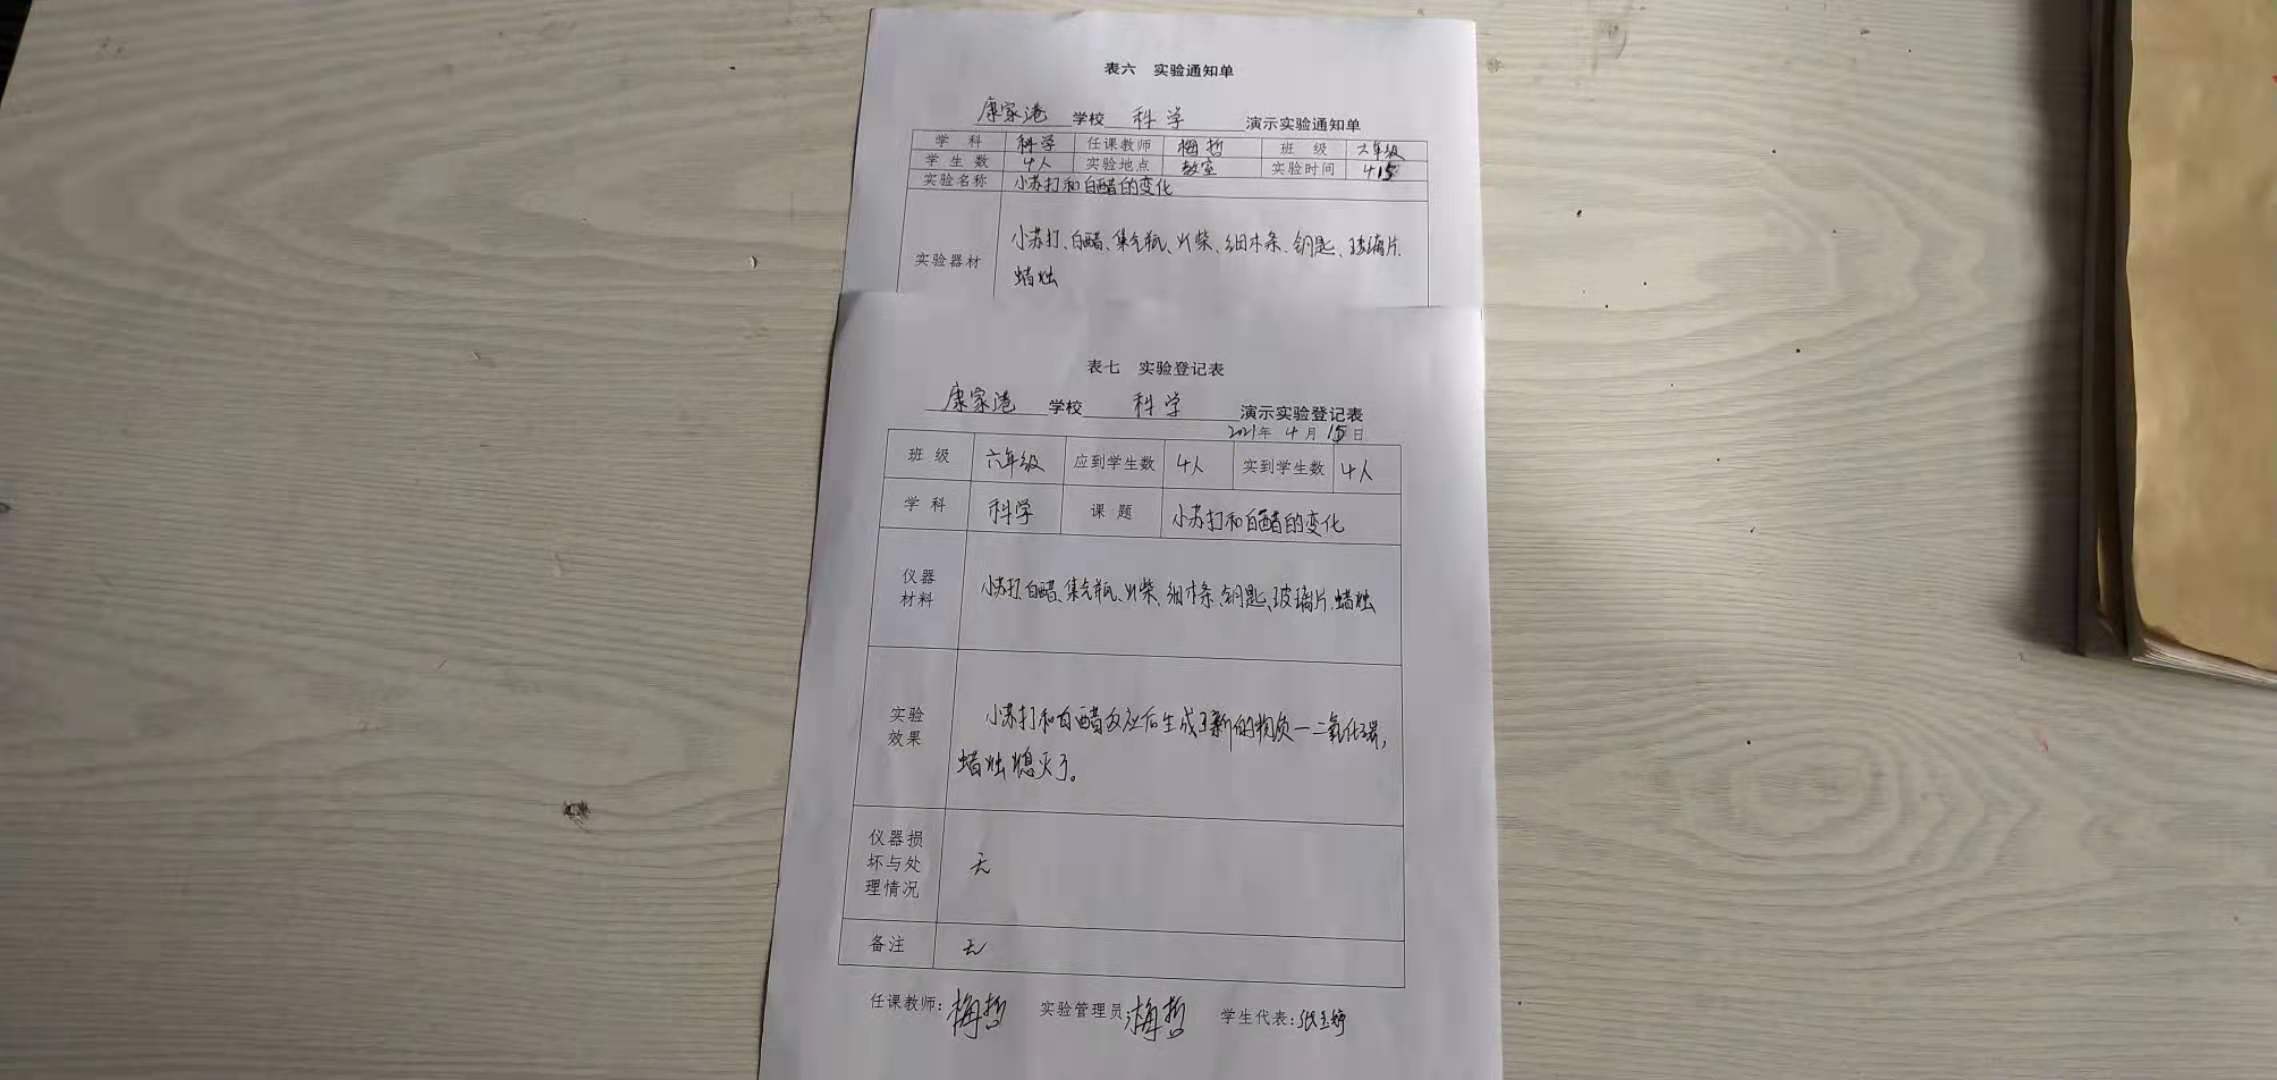 表六 实验通知单
康家港 学校 科学 演示实验通知单
学 科 科学 任课教师 梅哲 班 级 六年级
学 生 数 4人 实验地点 教室 实验时间 4.15
实验名称 小苏打和白醋的变化
实验器材 小苏打、白醋、集气瓶、火柴、细木条、钥匙、玻璃片、
蜡烛
表七 实验登记表
康家港 学校 科学 演示实验登记表
2021年 4月 15日
班 级 六年级 应到学生数 4人 实到学生数 4人
学 科 科学 课 题 小苏打和白醋的变化
仪器材料 小苏打、白醋、集气瓶、火柴、细木条、钥匙、玻璃片、蜡烛
实验效果 小苏打和白醋反应后生成了新的物质—二氧化碳,
蜡烛熄灭了。
仪器损坏与处理情况 无
备注 无
任课教师: 梅哲 实验管理员: 梅哲 学生代表: 张玉婷